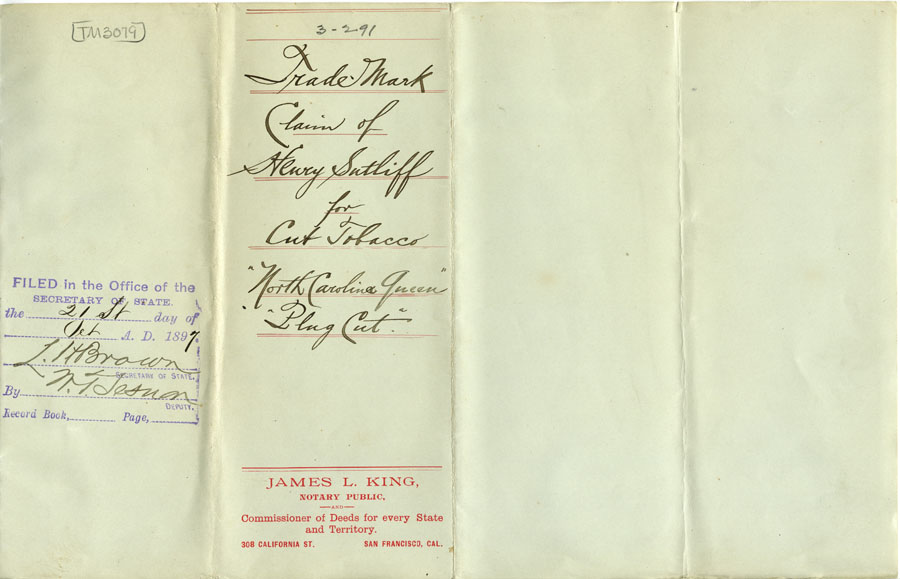 TM3079
FILED in the Office of the
SECRETARY OF STATE.
the 21st day of
Oct A. D. 1897
L. H. Brown
SECRETARY OF STATE.
By
DEPUTY.
Record Book, Page,
3-291
Trade-Mark
Claim of
Henry Sutliff
for
Cut Tobacco
"North Carolina Queen"
"Plug Cut".
JAMES L. KING,
NOTARY PUBLIC,
—AND—
Commissioner of Deeds for every State
and Territory.
308 CALIFORNIA ST. SAN FRANCISCO, CAL.